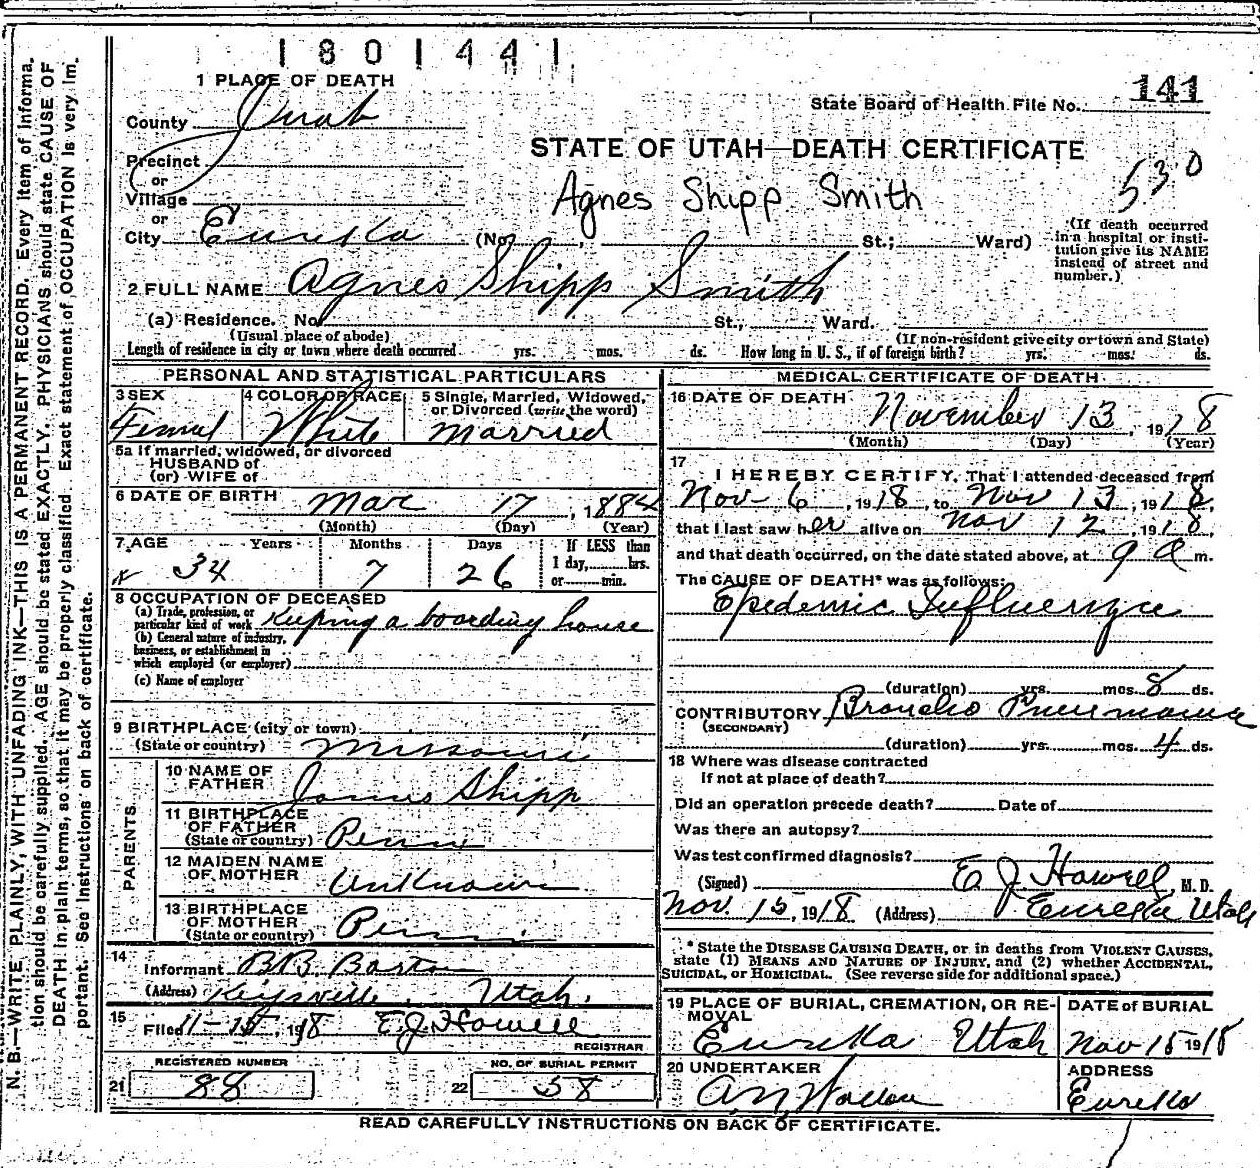 1801441
1 PLACE OF DEATH
State Board of Health File No. 141
County Juab
STATE OF UTAH—DEATH CERTIFICATE
Precinct
or
Village
or
Agnes Shipp Smith
530
City Eureka (No. , St.; Ward)
(If death occurred in a hospital or insti-
tution give its NAME
instead of street and
number.)
2 FULL NAME Agnes Shipp Smith
(a) Residence. No. St., Ward.
(Usual place of abode) (If non-resident give city or town and State)
Length of residence in city or town where death occurred yrs. mos. ds. How long in U. S., if of foreign birth? yrs. mos. ds.
PERSONAL AND STATISTICAL PARTICULARS
3 SEX 4 COLOR OR RACE 5 Single, Married, Widowed,
or Divorced (write the word)
Femal White Married
5a If married, widowed, or divorced
HUSBAND of
(or) WIFE of
6 DATE OF BIRTH Mar 17, 1884
(Month) (Day) (Year)
7 AGE Years Months Days If LESS than
1 day, hrs.
or min.
34 7 26
8 OCCUPATION OF DECEASED
(a) Trade, profession, or
particular kind of work Keeping a boarding house
(b) General nature of industry,
business, or establishment in
which employed (or employer)
(c) Name of employer
9 BIRTHPLACE (city or town)
(State or country) Missouri
PARENTS
10 NAME OF
FATHER James Shipp
11 BIRTHPLACE
OF FATHER
(State or country) Penn
12 MAIDEN NAME
OF MOTHER Unknown
13 BIRTHPLACE
OF MOTHER
(State or country) Penn
14
Informant B.B. Barton
(Address) Keysville, Utah.
15
Filed 11-15, 1918 E.J. Howell
REGISTRAR
REGISTERED NUMBER NO. OF BURIAL PERMIT
21 88 22 58
MEDICAL CERTIFICATE OF DEATH
16 DATE OF DEATH November 13, 1918
(Month) (Day) (Year)
17
I HEREBY CERTIFY, That I attended deceased from
Nov 6, 1918, to Nov 13, 1918,
that I last saw her alive on Nov 12, 1918,
and that death occurred, on the date stated above, at 9 a m.
The CAUSE OF DEATH* was as follows:
Epedemic Influenza
(duration) yrs. mos. 8 ds.
CONTRIBUTORY Broncho Pneumonia
(SECONDARY)
(duration) yrs. mos. 4 ds.
18 Where was disease contracted
if not at place of death?
Did an operation precede death? Date of
Was there an autopsy?
Was test confirmed diagnosis?
(Signed) E J. Howell, M. D.
Nov. 15, 1918 (Address) Eureka Utah
* State the DISEASE CAUSING DEATH, or in deaths from VIOLENT CAUSES,
state (1) MEANS AND NATURE OF INJURY, and (2) whether ACCIDENTAL,
SUICIDAL, or HOMICIDAL. (See reverse side for additional space.)
19 PLACE OF BURIAL, CREMATION, OR RE-
MOVAL DATE of BURIAL
Eureka Utah Nov 15 1918
20 UNDERTAKER ADDRESS
A.N. Eureka
READ CAREFULLY INSTRUCTIONS ON BACK OF CERTIFICATE.
N. B.—WRITE PLAINLY, WITH UNFADING INK—THIS IS A PERMANENT RECORD. Every item of informa-
tion should be carefully supplied. AGE should be stated EXACTLY. PHYSICIANS should state CAUSE OF
DEATH in plain terms, so that it may be properly classified. Exact statement of OCCUPATION is very im-
portant. See instructions on back of certificate.